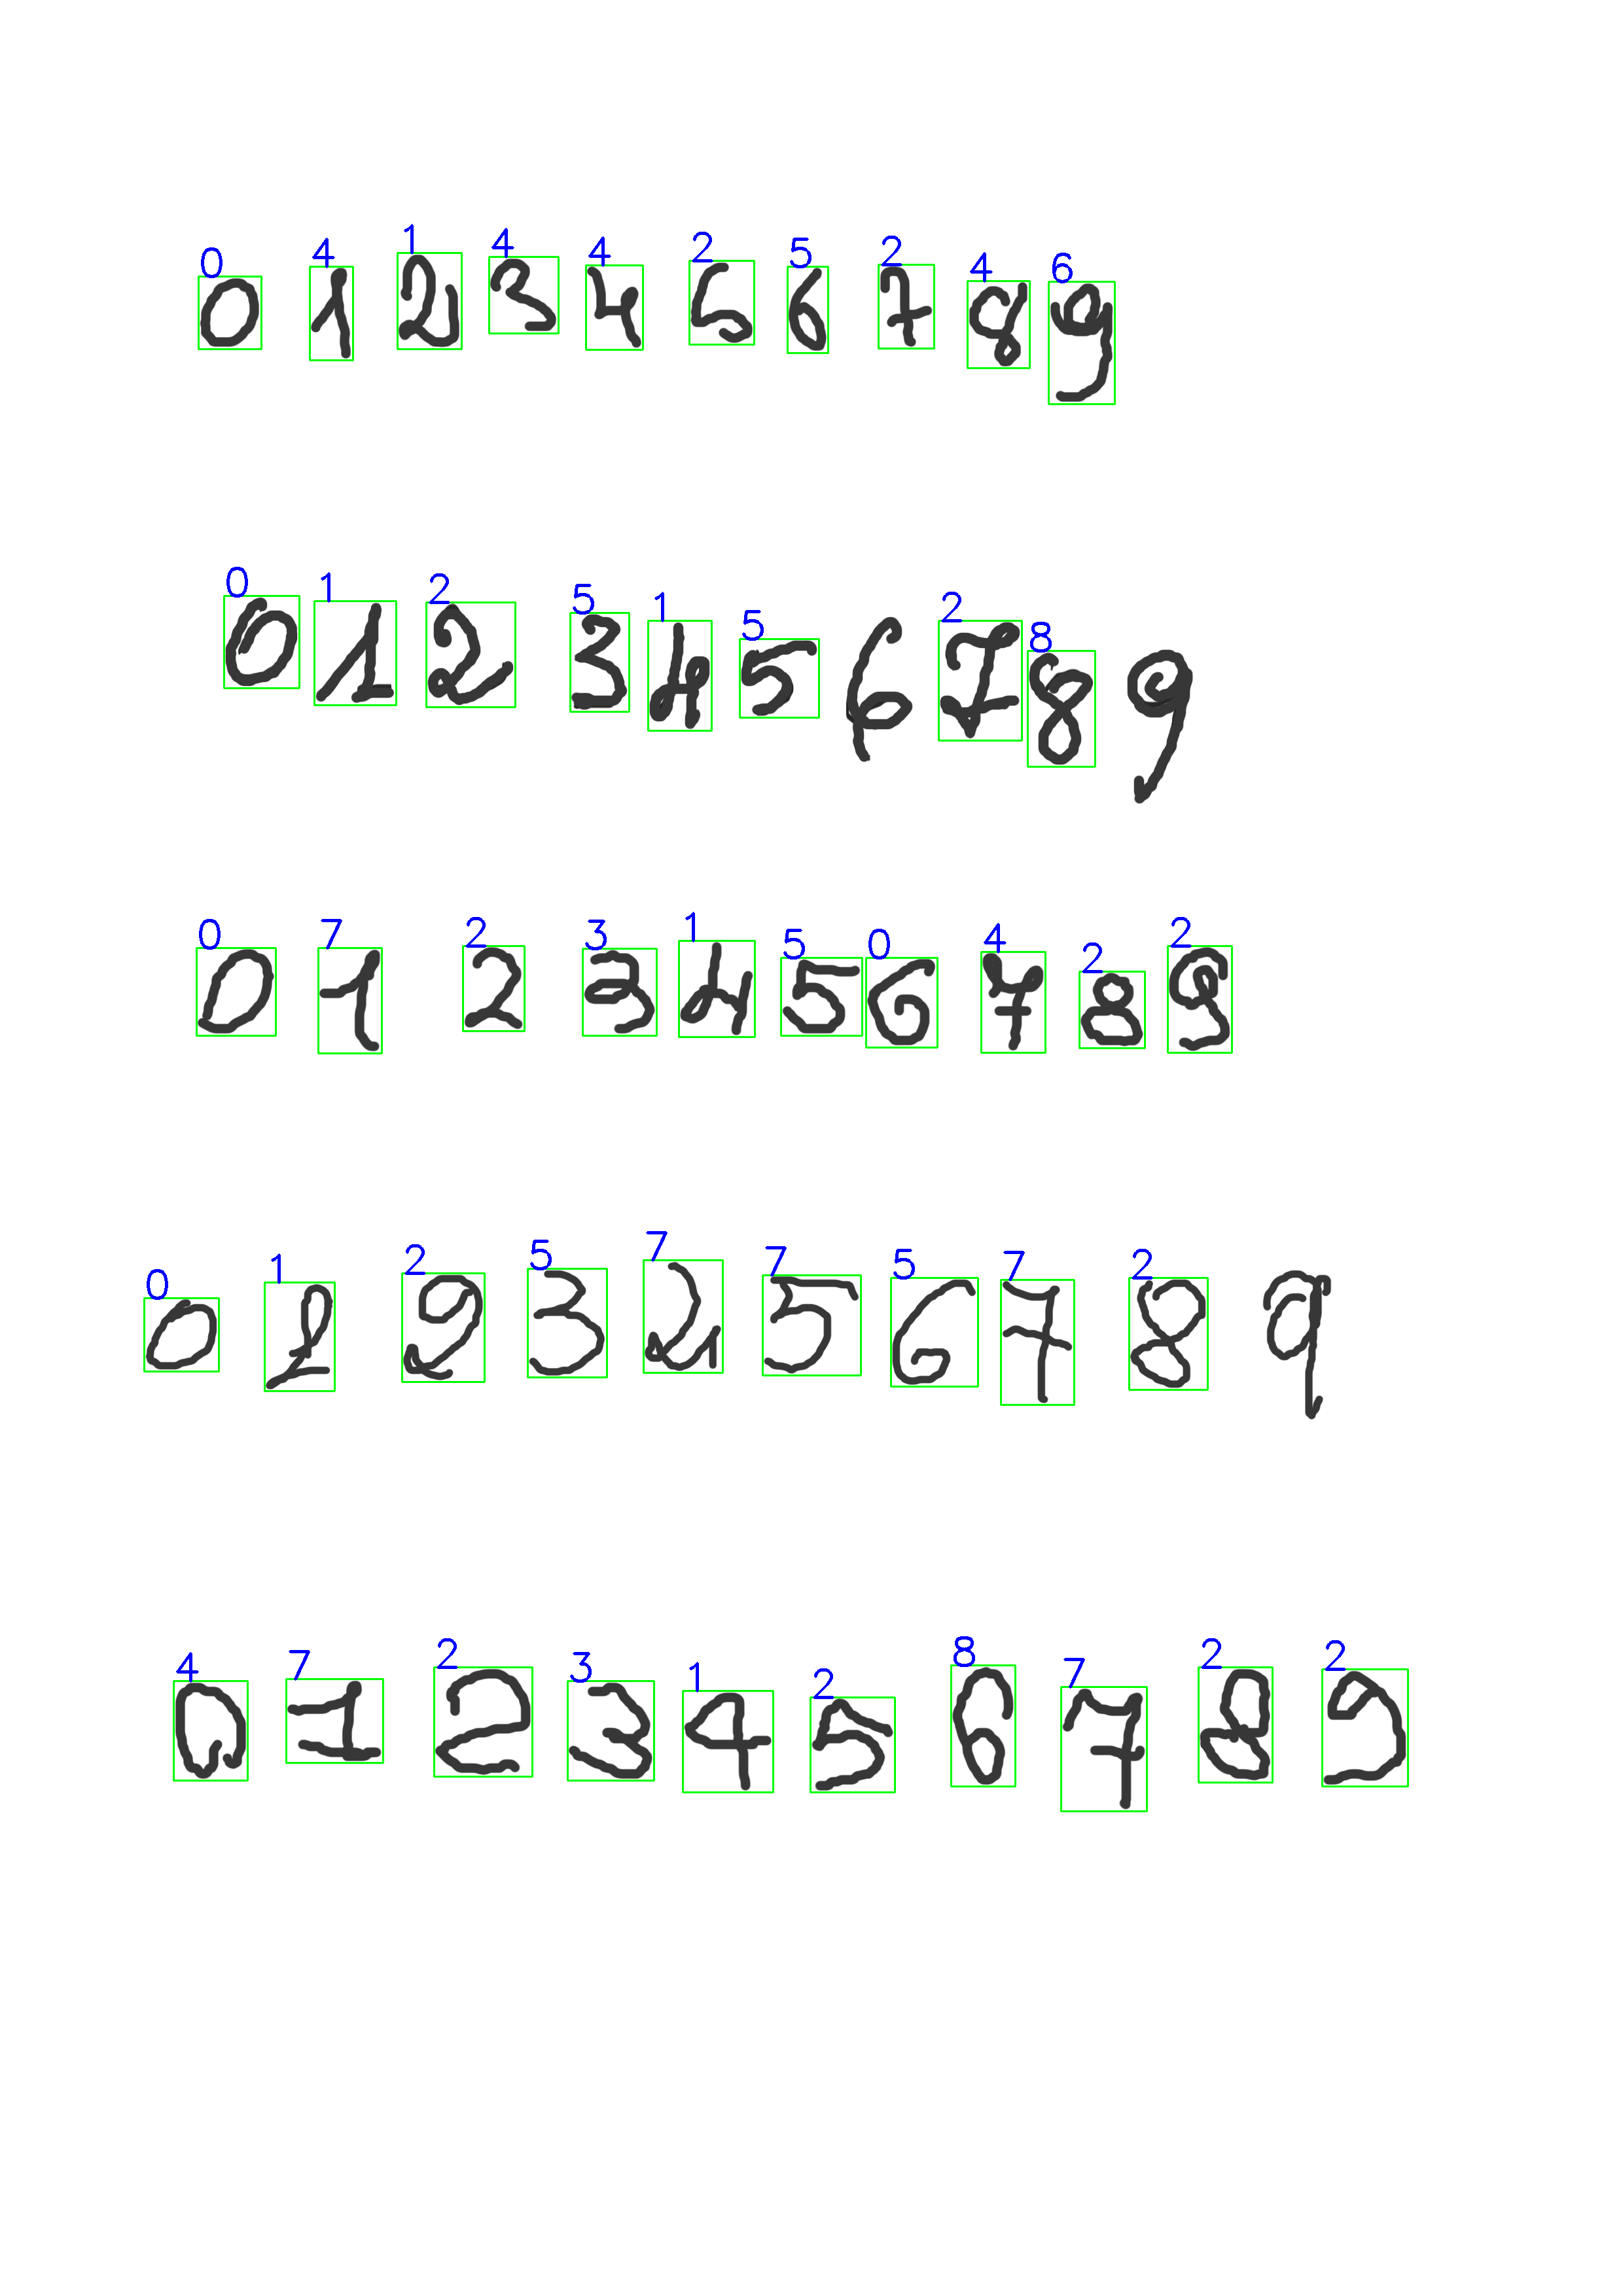 0 4 1 4 4 2 5 2 4 6
0 1 2 3 4 5 6 7 8 9
0 1 2 5 1 5 2 8
0 1 2 3 4 5 6 7 8 9
0 7 2 3 1 5 0 4 2 2
0 1 2 3 4 5 6 7 8 9
0 1 2 5 7 7 5 7 2
0 1 2 3 4 5 6 7 8 9
4 7 2 3 1 2 8 7 2 2
0 1 2 3 4 5 6 7 8 9